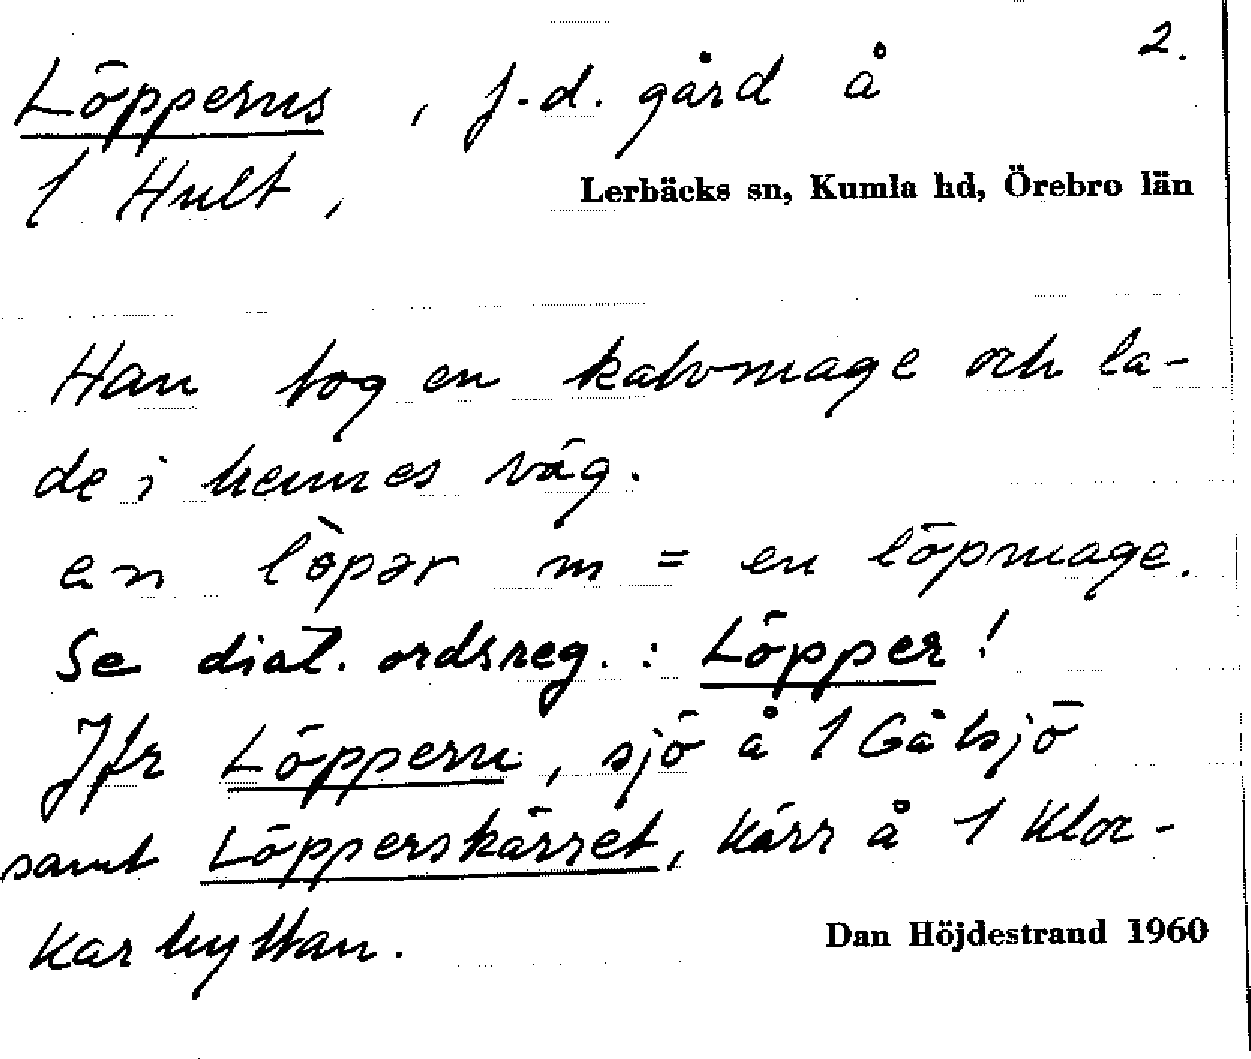 2.
Löpperns, f.d. gård å
1 Hult,
Lerbäcks sn, Kumla hd, Örebro län
Han tog en kalvmage och la-
de i hennes väg.
en löpər m = en löpmage.
Se dial. ordsreg.: Löpper!
Jfr Löppern, sjö å 1 Gålsjö
samt Löpperskärret, kärr å 1 Kloc-
karhyttan.
Dan Höjdestrand 1960